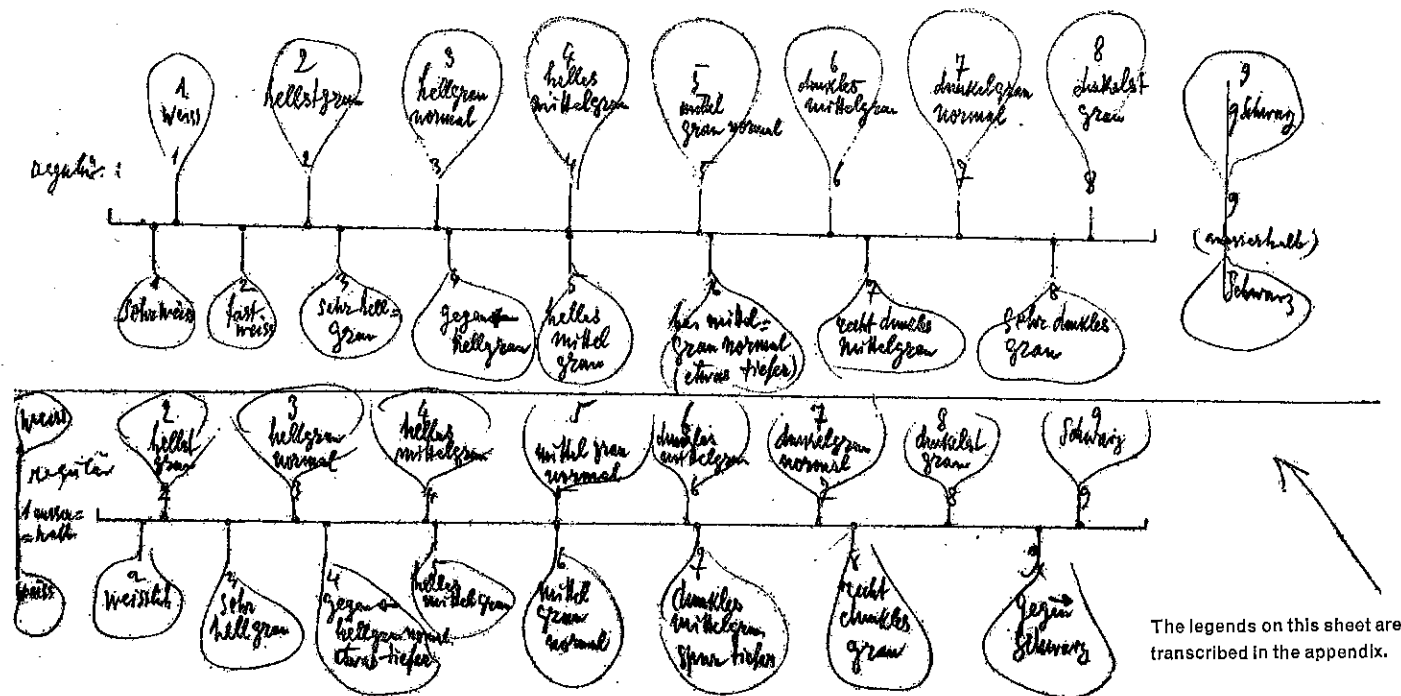 1
weiss
1
2
hellstgrau
2
3
hellgrau
normal
3
4
helles
mittelgrau
4
5
mittel
grau normal
5
6
dunkles
mittelgrau
6
7
dunkelgrau
normal
7
8
dunkelst
grau
8
9
schwarz
9
(ausserhalb)
Schwarz
regulär :
1
Sehr weiss
2
fast
weiss
3
sehr hell=
grau
4
gegen
hellgrau
5
helles
mittel
grau
6
mittel=
grau normal
(etwas tiefer)
7
recht dunkles
mittelgrau
8
Sehr dunkles
grau
weiss
regulär
1 ausser=
=halb
weiss
2
hellst
grau
2
3
hellgrau
normal
3
4
helles
mittelgrau
4
5
mittel grau
normal
5
6
dunkles
mittelgrau
6
7
dunkelgrau
normal
7
8
dunkelst
grau
8
9
Schwarz
9
2
weisslich
3
Sehr
hellgrau
4
gegen
hellgrau normal
etwas tiefer
5
helles
mittelgrau
6
mittel
grau
normal
7
dunkles
mittelgrau
Spur tiefer
8
recht
dunkles
grau
9
gegen
Schwarz
The legends on this sheet are
transcribed in the appendix.